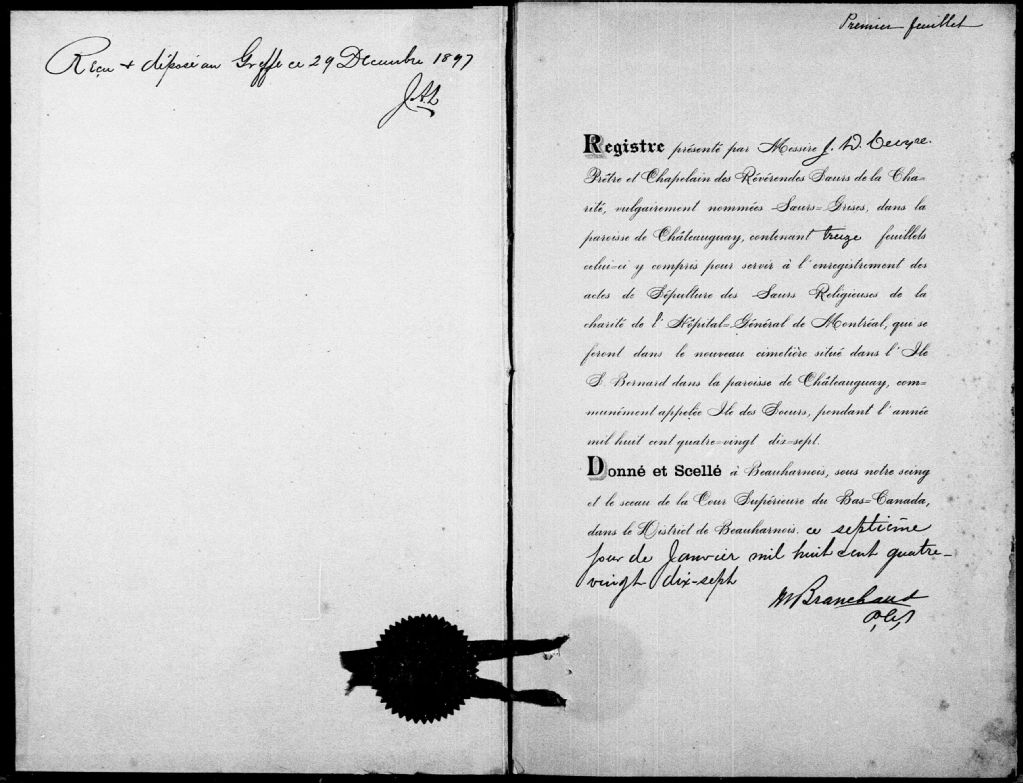 Reçu & déposé au Greffe ce 29 Décembre 1897
J.A.L
Premier feuillet
Registre présenté par Messire J. D.
Prêtre et Chapelain des Révérendes Sœurs de la Cha=
rité, vulgairement nommées Sœurs=Grises, dans la
paroisse de Châteauguay, contenant treize feuillets
celui=ci y compris pour servir à l'enregistrement des
actes de Sépulture des Sœurs Religieuses de la
charité de l'Hôpital=Général de Montréal, qui se
feront dans le nouveau cimetière situé dans l'Ile
S. Bernard dans la paroisse de Châteauguay, com=
munément appelée Ile des Soeurs, pendant l'année
mil huit cent quatre=vingt dix=sept.
Donné et Scellé à Beauharnois, sous notre seing
et le sceau de la Cour Supérieure du Bas=Canada,
dans le District de Beauharnois. ce septième
jour de Janvier mil huit cent quatre-
vingt dix-sept
Branchaud